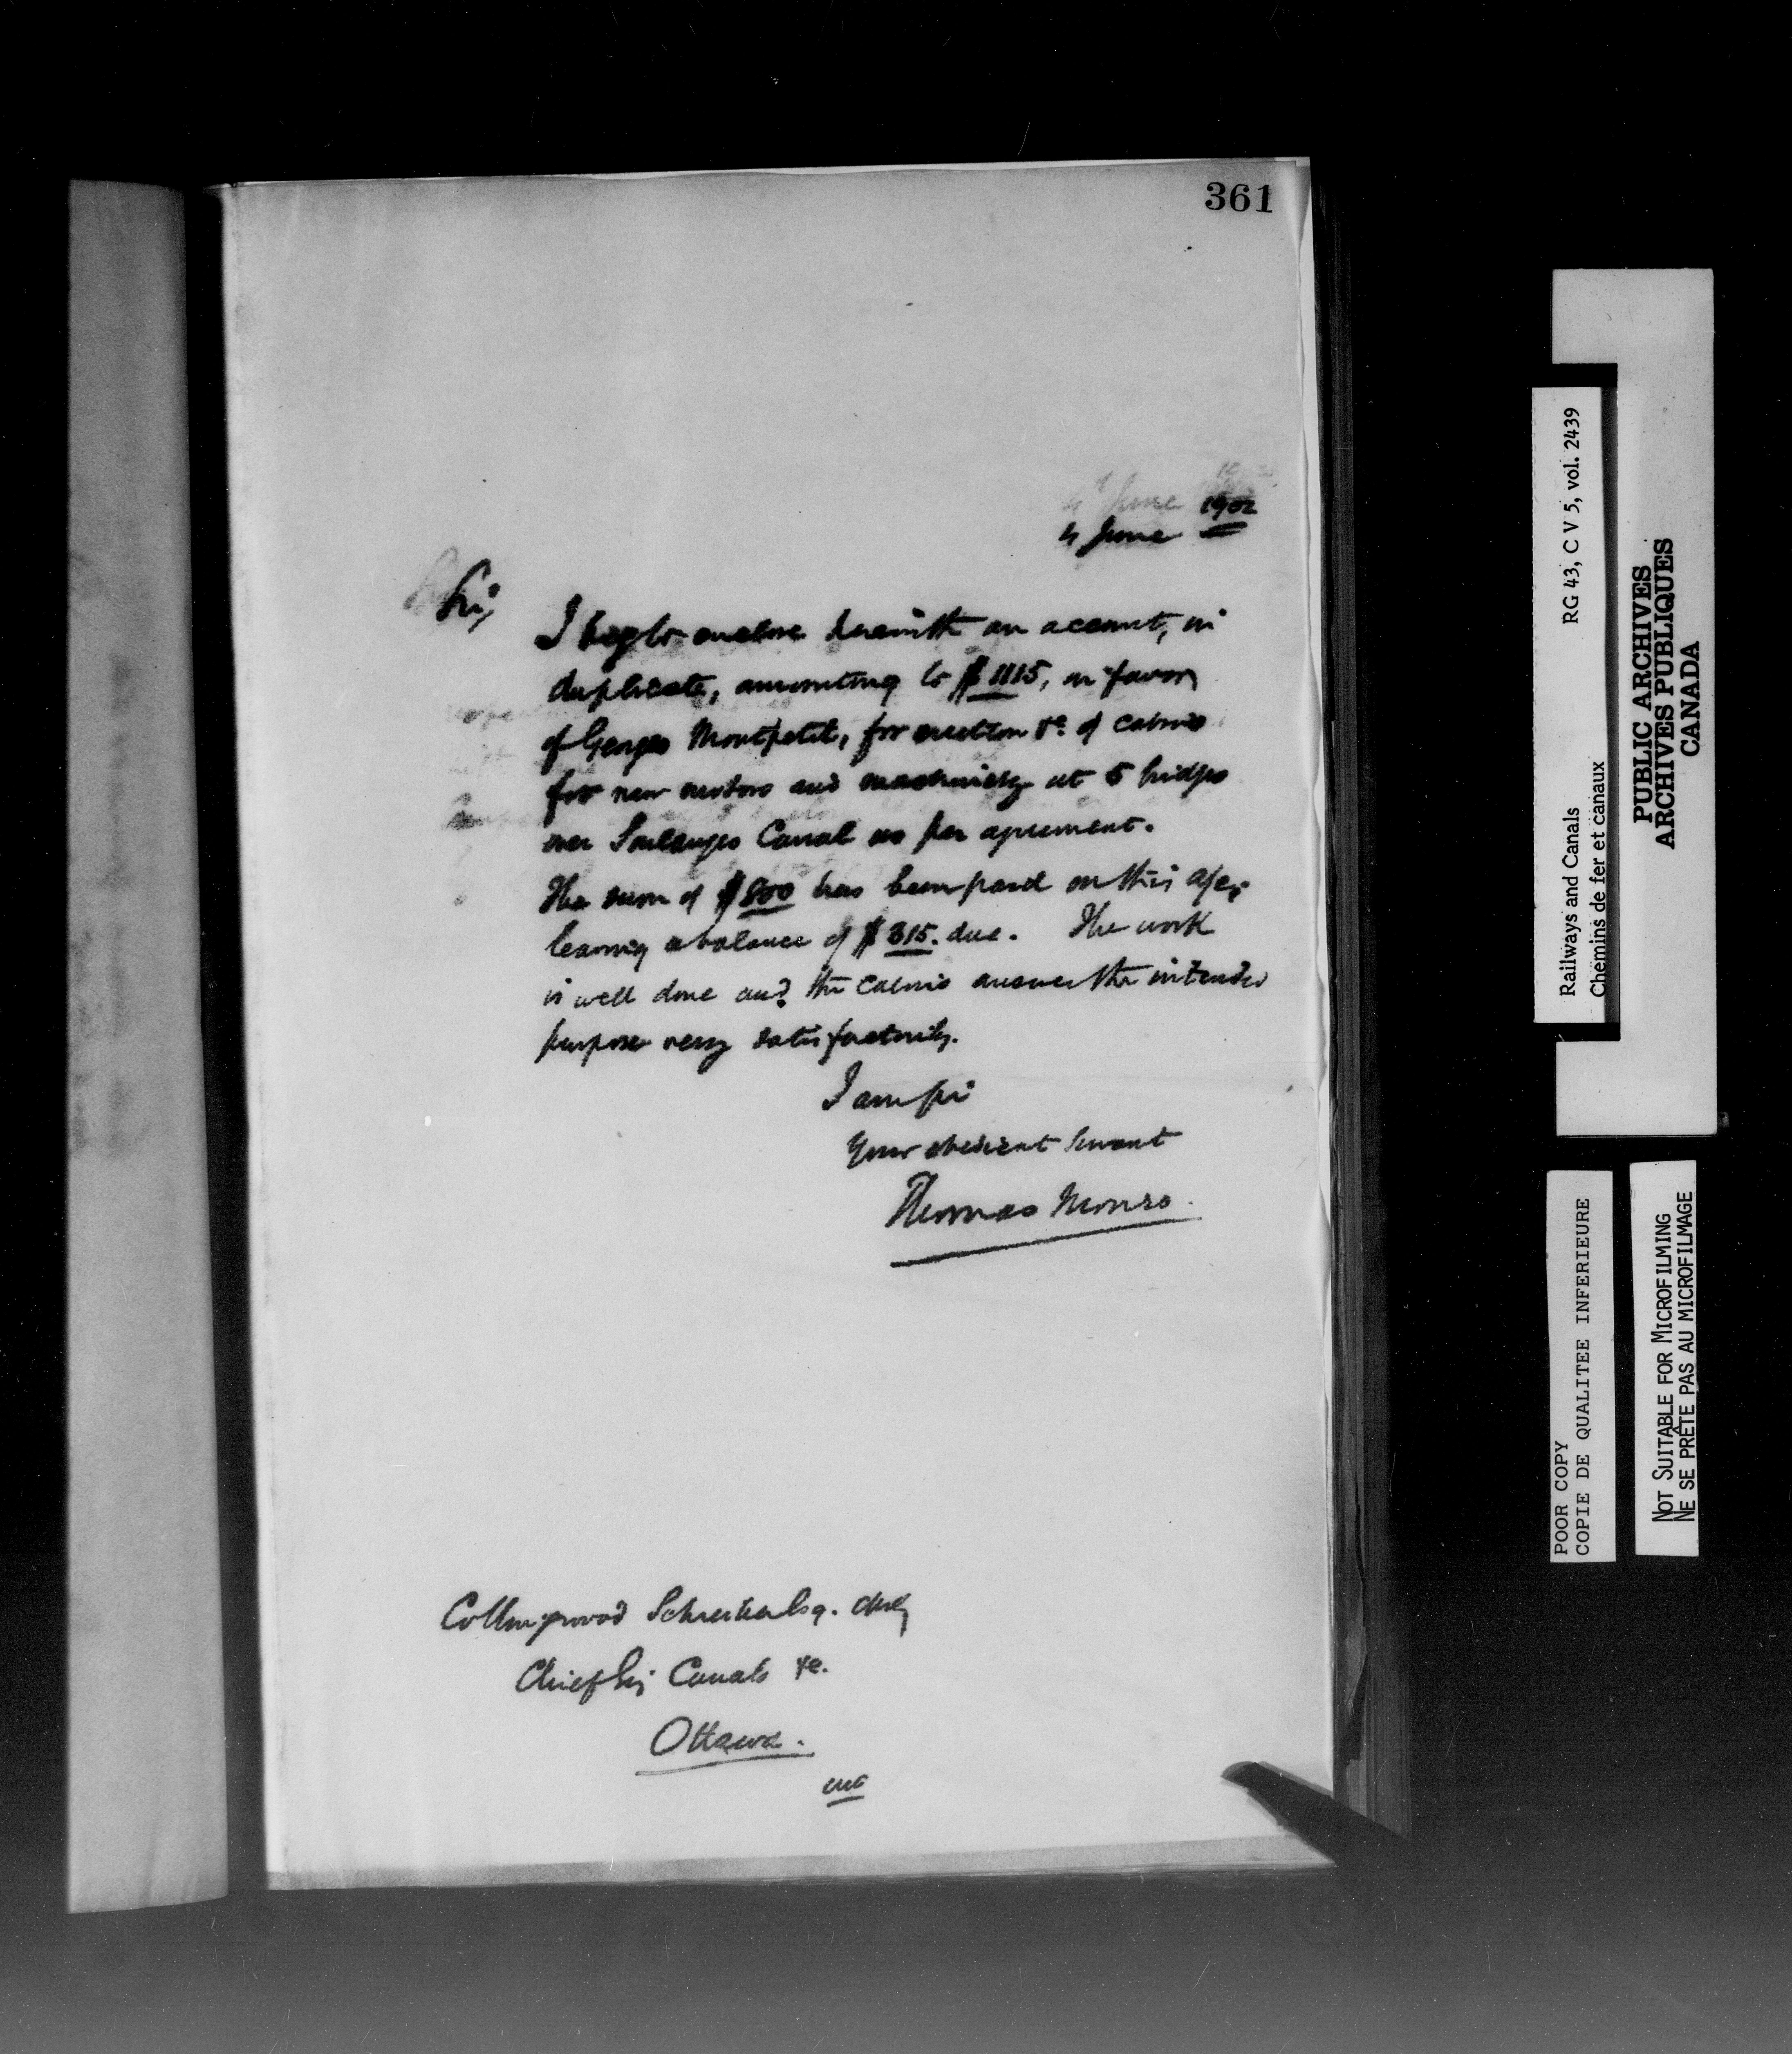 361
4 June 1902
Sir,
I beg to enclose herewith an account, in
duplicate, amounting to $1115, in favor
of Georges Montpetit, for erection &c. of cabins
for new motors and machinery at 5 bridges
over Soulanges Canal as per agreement.
The sum of $800 has been paid on this a/c,
leaving a balance of $315. due. The work
is well done and the cabins answer the intended
purpose very satisfactorily.
I am Sir
Your obedient Servant
Thomas Monro.
Collingwood Schreiber Esq. CMG
Chief Eng Canals &c.
Ottawa.
Railways and Canals RG 43, C V 5, vol. 2439
Chemins de fer et canaux
PUBLIC ARCHIVES
ARCHIVES PUBLIQUES
CANADA
POOR COPY
COPIE DE QUALITEE INFERIEURE
NOT SUITABLE FOR MICROFILMING
NE SE PRÊTE PAS AU MICROFILMAGE